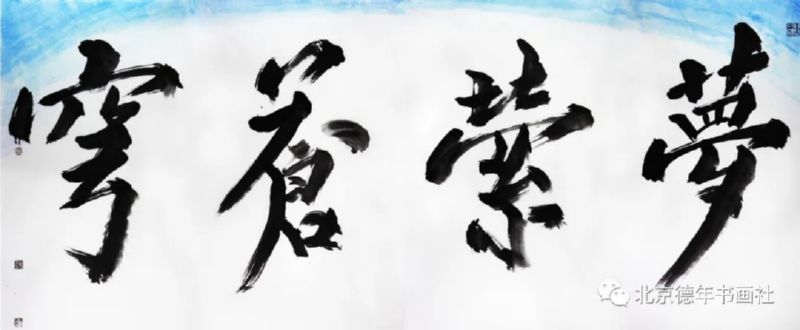 夢萦蒼穹
北京德年书画社